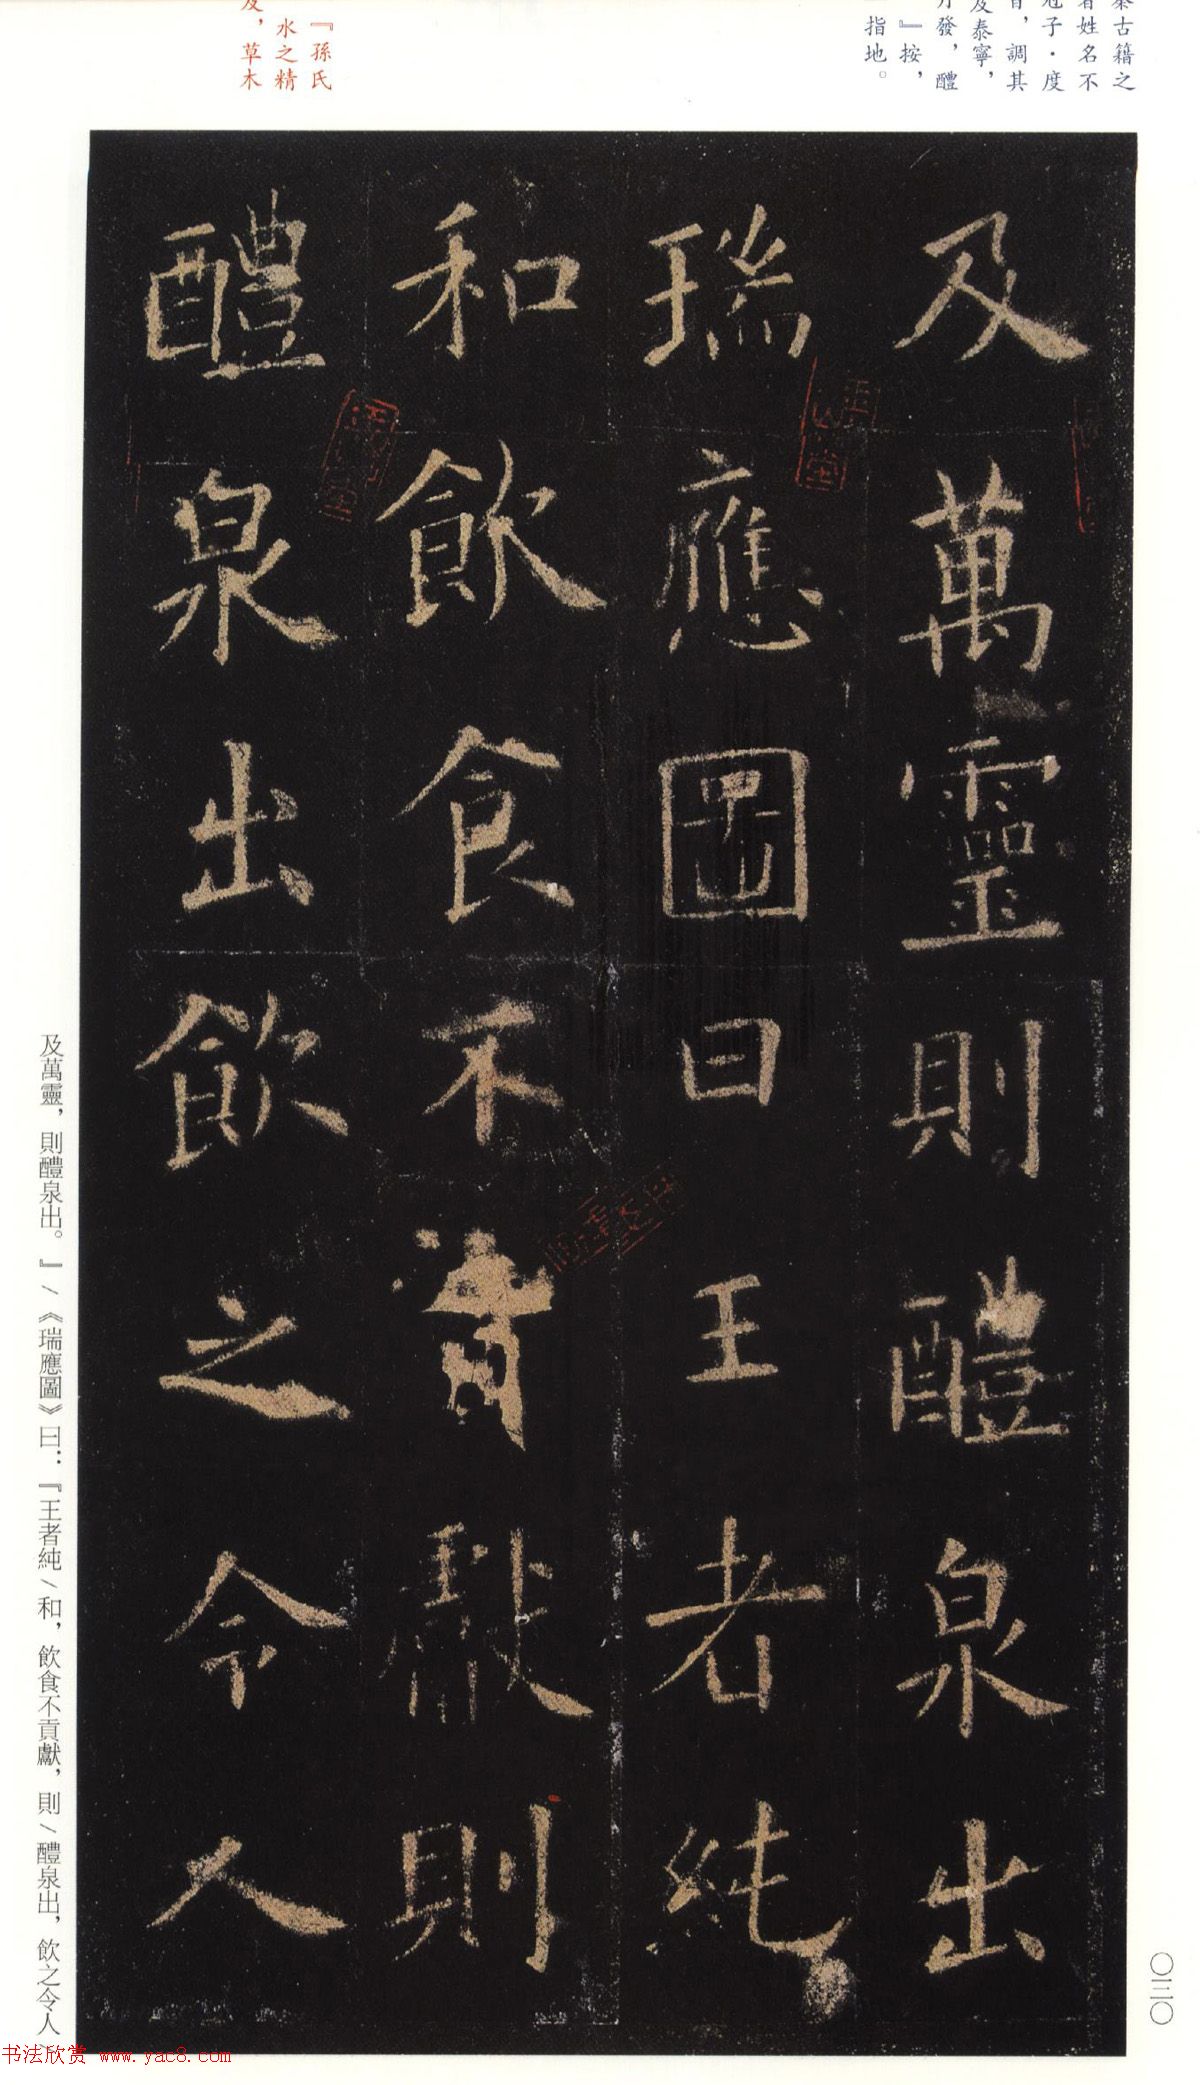 秦古籍之
者姓名不
冠子·度
音，調其
及泰寧，
乃發，醴
』按，
指地。
『孫氏
水之精
及，草木
及萬靈則醴泉出
瑞應圖曰王者純
和飲食不貢獻則
醴泉出飲之令人
及萬靈，則醴泉出。』/《瑞應圖》曰：『王者純/和，飲食不貢獻，則/醴泉出，飲之令人/
〇三〇
书法欣赏 www.yac8.com